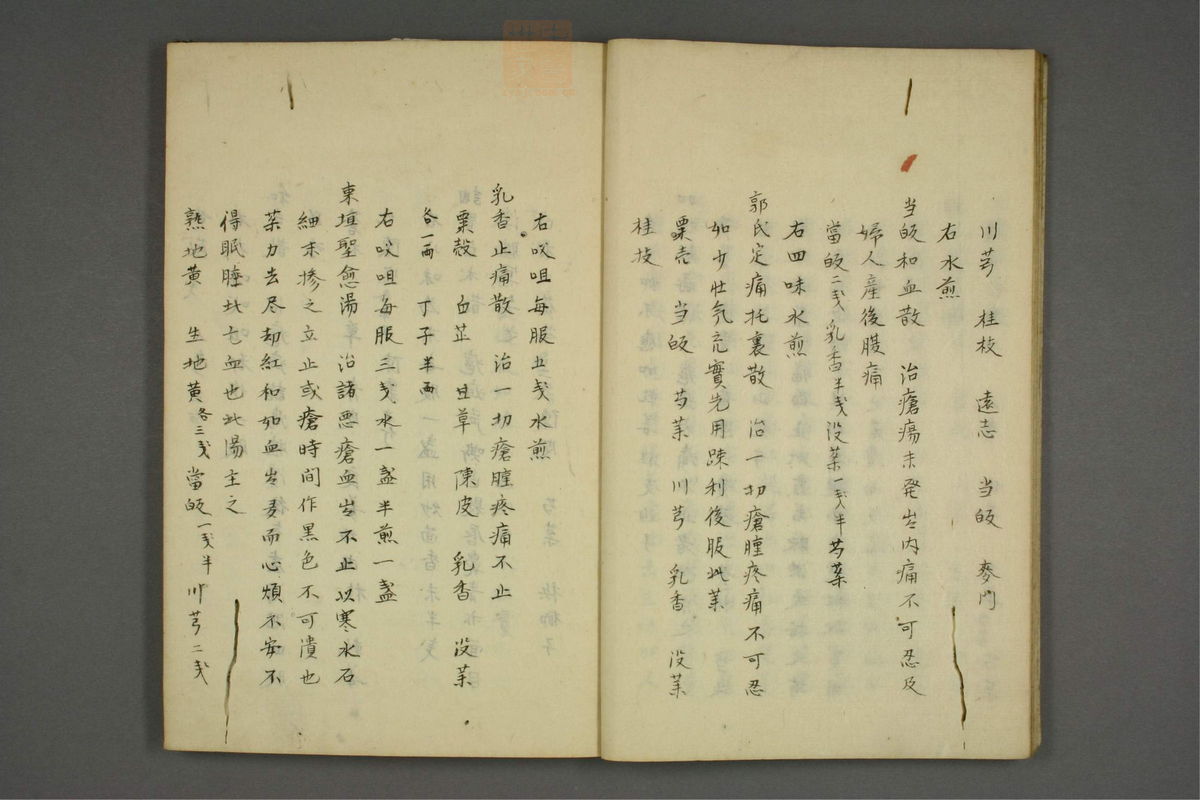 川芎　桂枝　遠志　当皈　麥門
右水煎
当皈和血散　治瘡瘍未発出内痛不可忍及
婦人産後腹痛
當皈二戋乳香半戋没薬一戋半芍薬
右四味水煎
郭氏定痛托裏散　治一切瘡腫疼痛不可忍
如少壮気充實先用踈利後服此薬
粟壳　当皈　芍薬　川芎　乳香　没薬
桂枝
右㕮咀毎服五戋水煎
乳香止痛散　治一切瘡腫疼痛不止
粟殻　白芷　甘草　陳皮　乳香　没薬
各一両　丁子半両
右㕮咀毎服三戋水一盞半煎一盞
東垣聖愈湯　治諸悪瘡血出不止以寒水石
細末掺之立止或瘡時間作黒色不可潰也
薬力去尽却紅和如血出多而心煩不安不
得眠睡此亡血也此湯主之
熟地黄　生地黄各三戋當皈一戋半川芎二戋